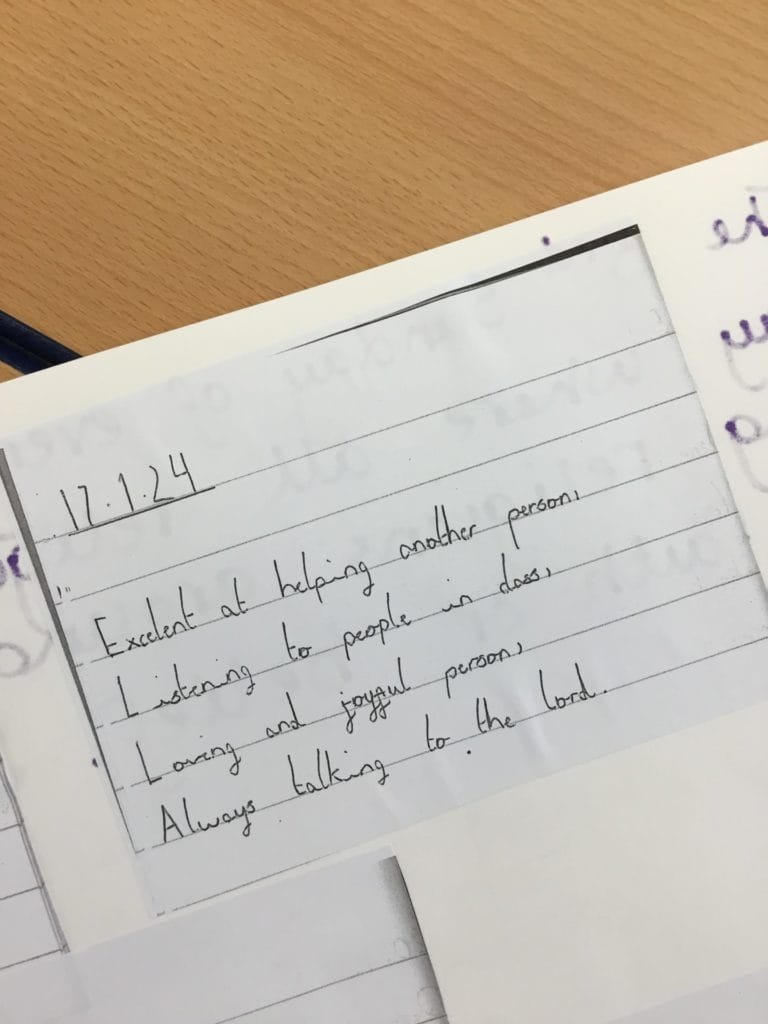 17.1.24
Excelent at helping another person,
Listening to people in class,
Loving and joyful person,
Always talking to the Lord.